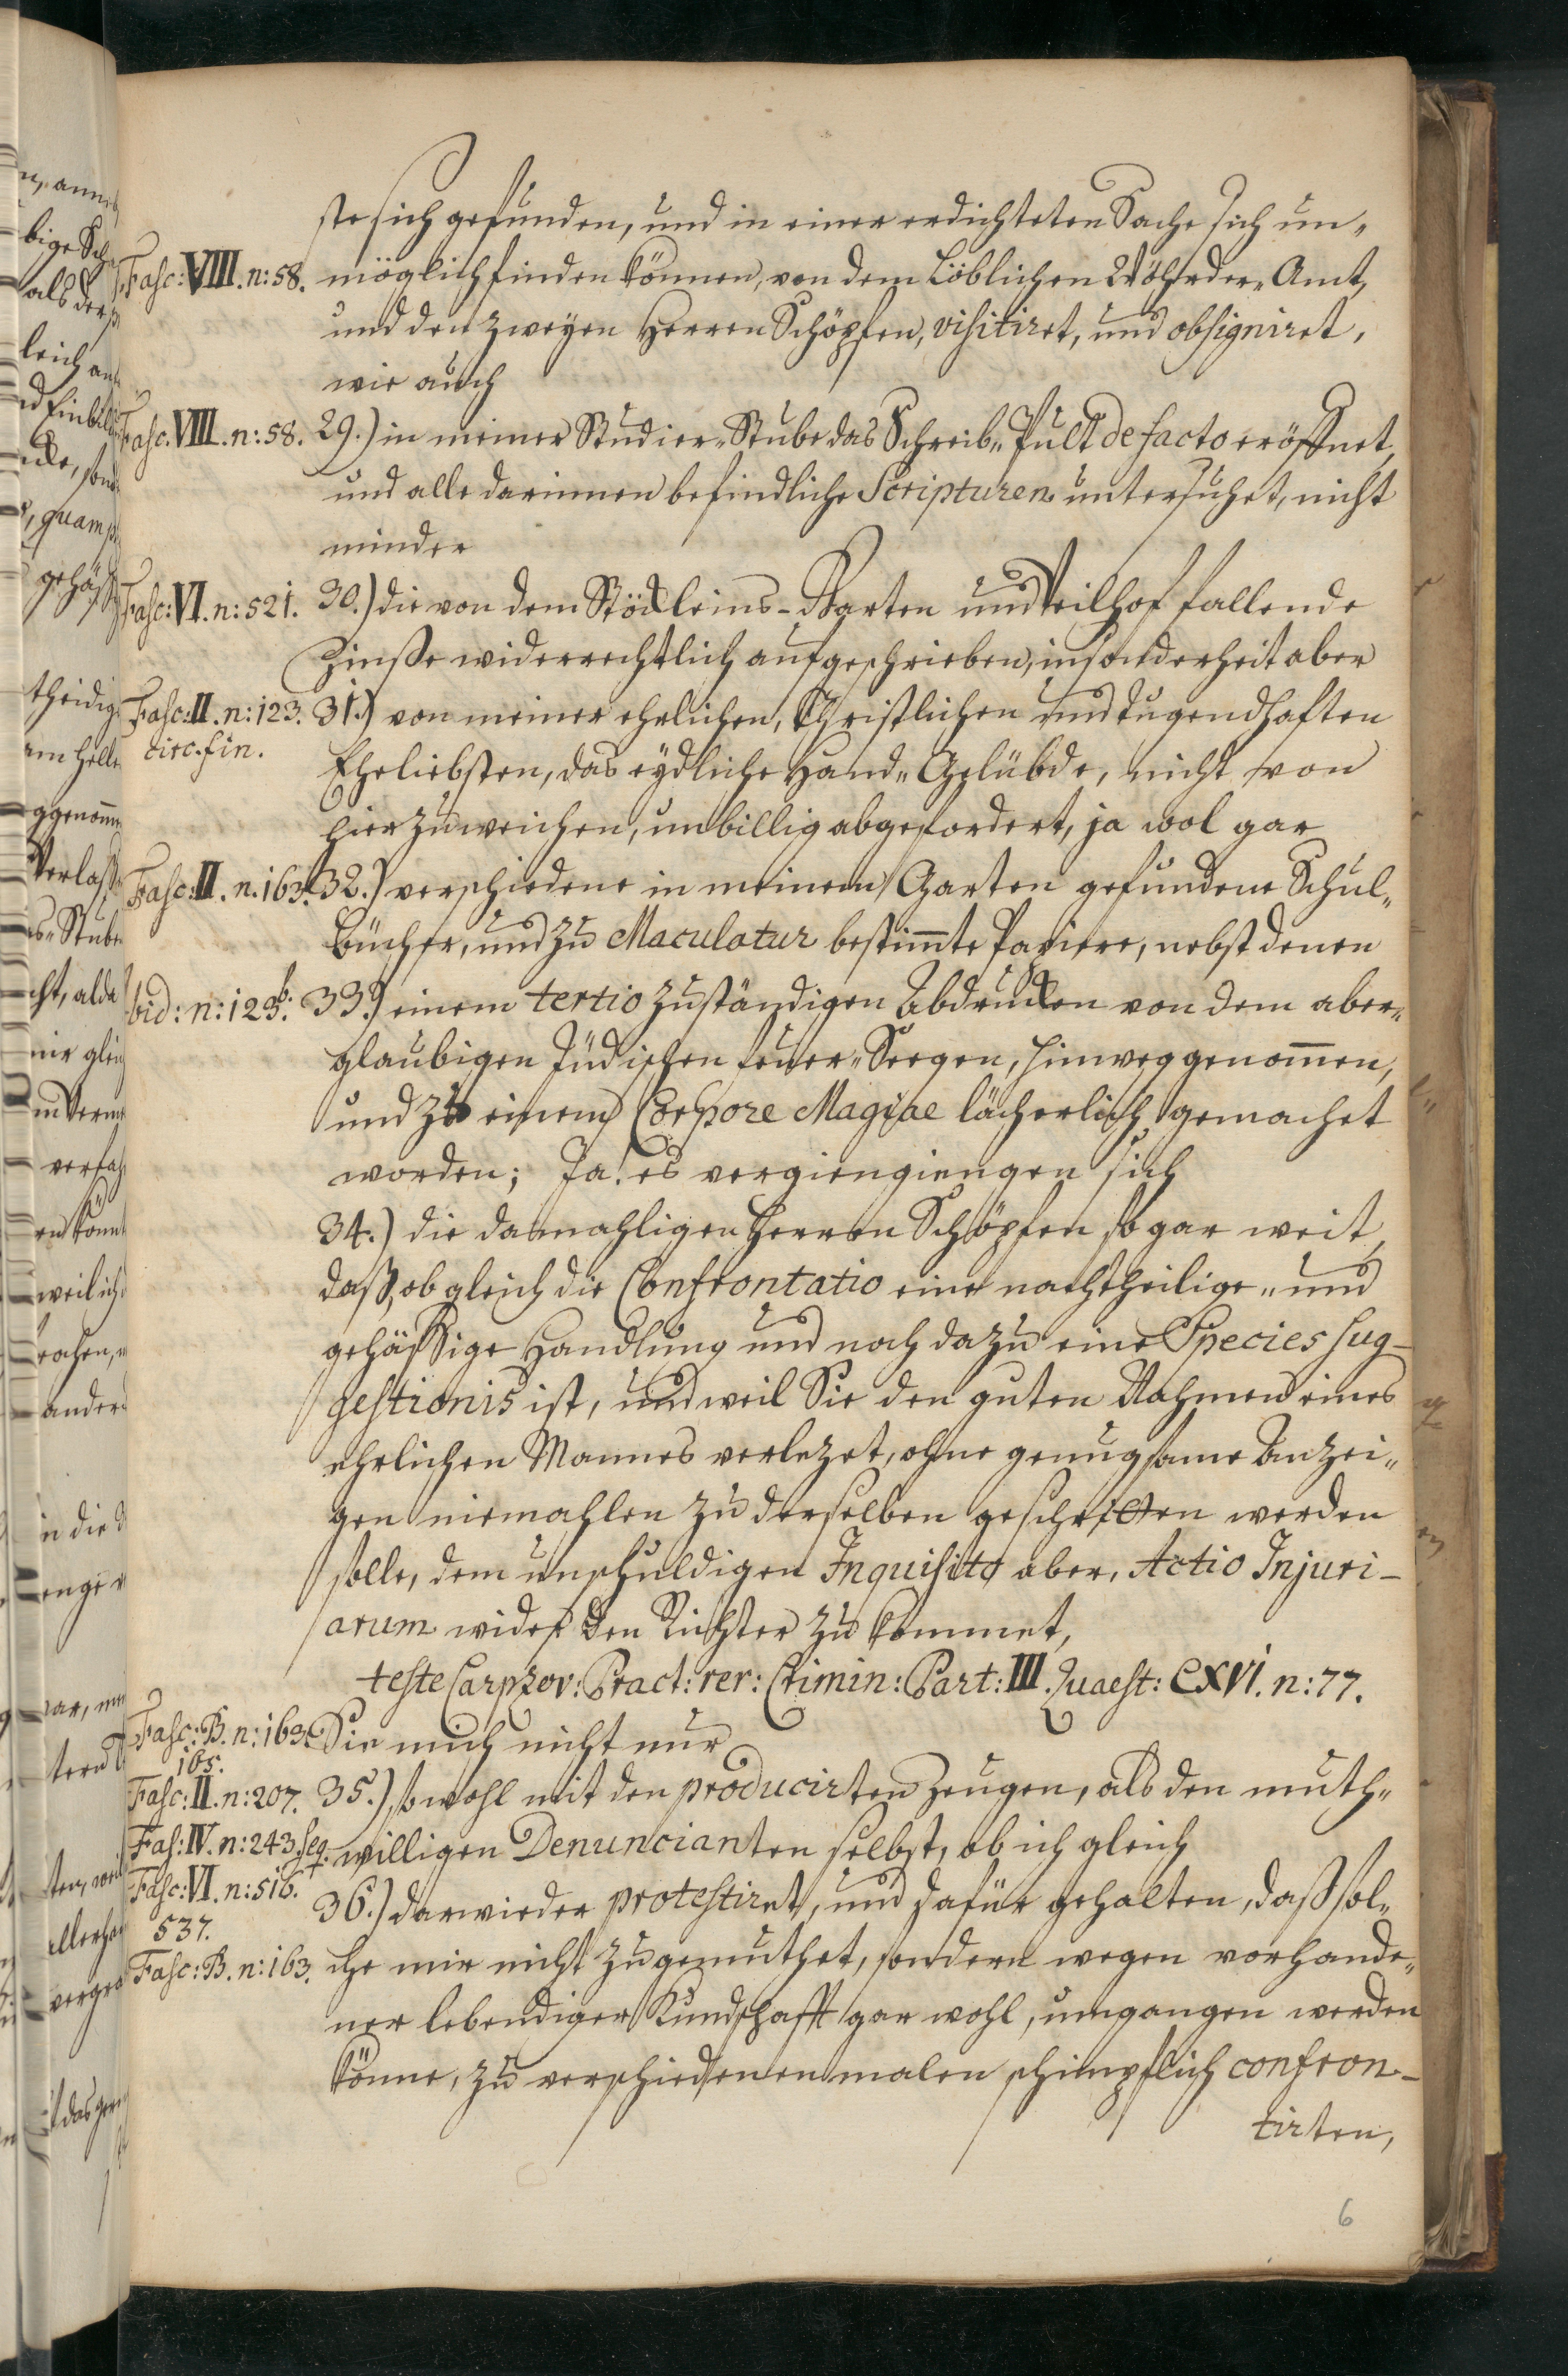 ste sich gefunden, und in einer erdichteten Sache sich un„
Fasc: VIII. n: 58. möglich finden können, von dem Löblichen Vöhrder„ Amt,
und den zweyen Herren Schöpfen, visitiret, und obsigniret,
wie auch
Fasc. VIII. n: 58. 29.) in meiner Studier„ Stube das Schreib„ Pult de facto eröffnet,
und alle darinnen befindliche Scripturen untersuchet, nicht
minder
Fasc: VI. n: 521. 30.) die von dem Stöckleins-Garten und Veilhof fallende
Zinße widerrechtlich aufgeschrieben, insonderheit aber
Fasc: II. n: 123. 31.) von meiner ehrlichen, Christlichen und tugendhaften
circ. fin. Eheliebsten, das eydliche Hand„ Gelübde, nicht von
hier zu weichen, unbillig abgefordert, ja wol gar
Fasc: II. n. 163. 32.) verschiedene in meinem Garten gefundene Schul„
bücher, und zu Maculatur bestimmte Papiere, nebst denen
ibid: n: 123 b. 33.) einem tertio zuständigen Abdrucken von dem aber„
glaubigen Jüdischen Feuer„ Seegen, hinweggenommen,
und zu einem Corpore Magiae lächerlich gemachet
worden; Ja! es vergiengiengen sich
34.) die damahligen Herren Schöpfen so gar weit,
daß, obgleich die Confrontatio eine nachtheilige„ und
gehässige Handlung und noch dazu eine Species sug-
gestionis ist, und weil Sie den guten Nahmen eines
ehrlichen Mannes verlezet, ohne genugsame Anzei„
gen niemahlen zu derselben geschritten werden
solle, dem unschuldigen Inquisito aber, Actio Injuri-
arum wider den Richter zu kommet,
teste Carpzov: Pract: rer: Crimin: Part: III. Quaest: CXVI. n: 77.
Fasc: B. n: 163. Sie mich nicht nur
165.
Fasc: II. n: 207. 35.) sowohl mit den producirten Zeugen, als den muth„
Fasc: IV. n: 243. seq. willigen Denuncianten selbst, ob ich gleich
Fasc: VI. n: 516. 36.) darwieder protestiret, und dafür gehalten, daß sol„
537.
Fasc: B. n: 163. che mir nicht zugemuthet, sondern wegen vorhande„
ner lebendiger Kundschafft gar wohl, umgangen werden
könne, zu verschiedenen malen schimpflich confron-
tirten,
6